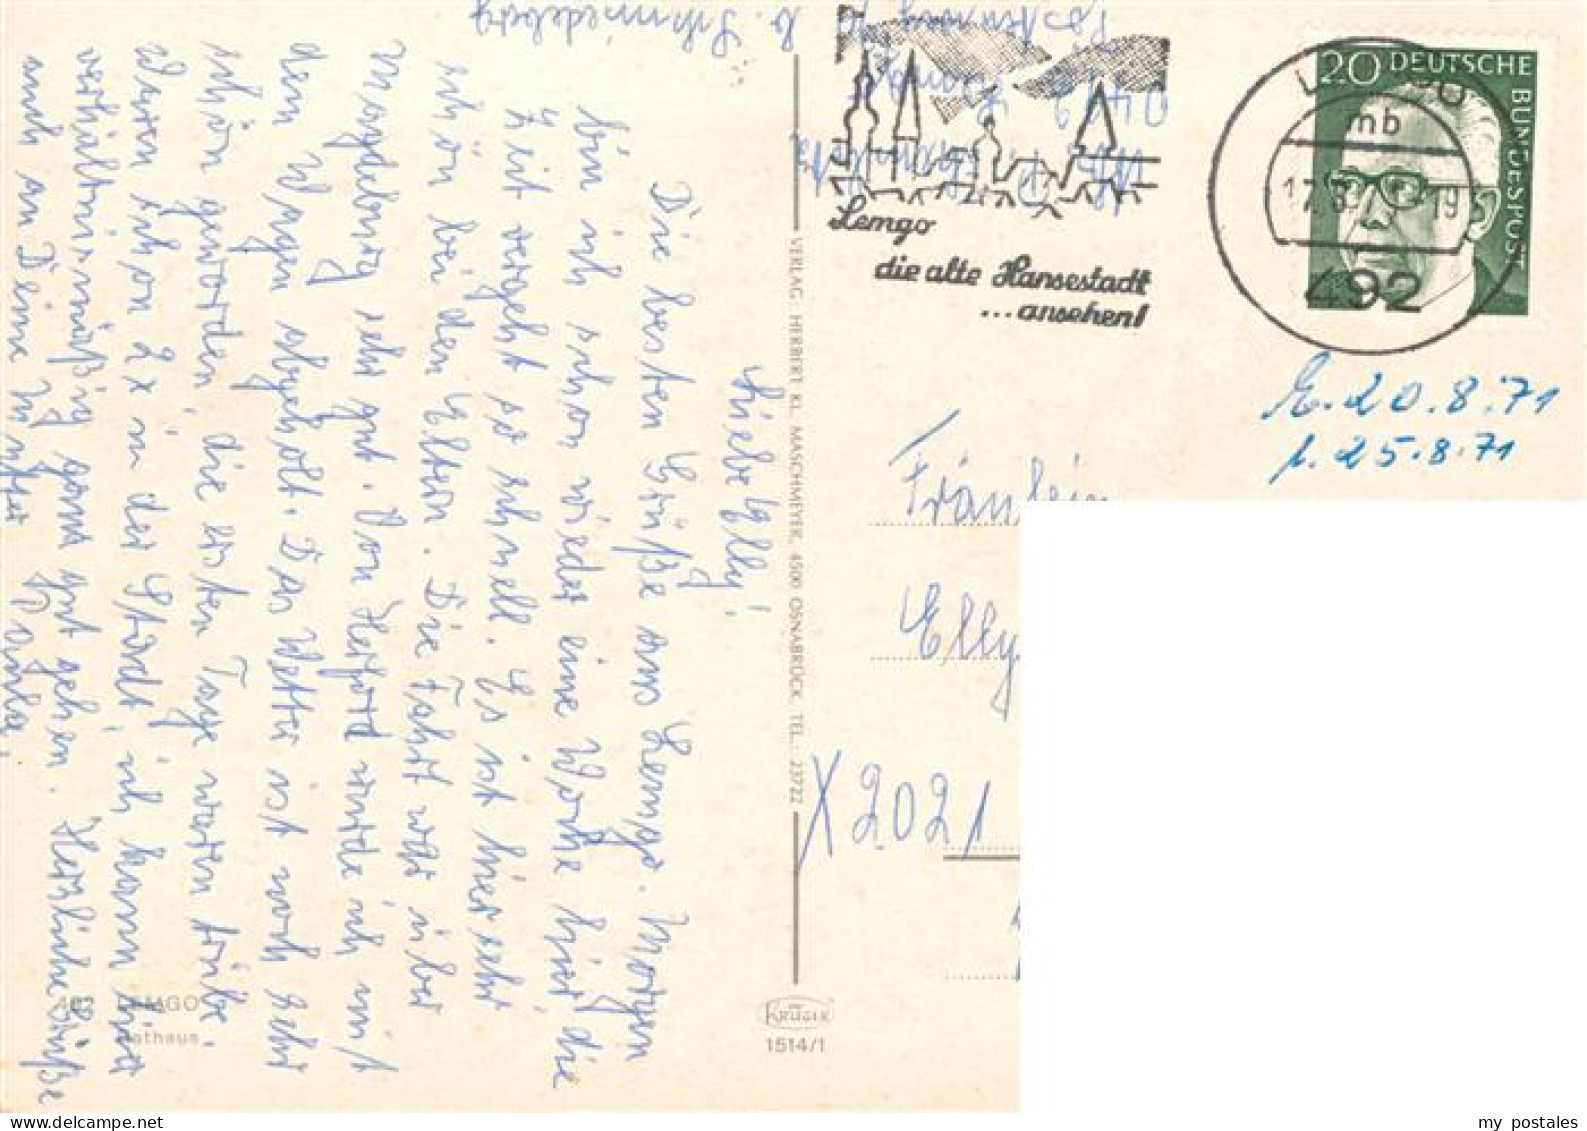 Liebe Elly!
Die besten Grüße aus Lemgo. Morgen
bin ich schon wieder eine Woche hier, die
Zeit vergeht so schnell. Es ist hier sehr
schön bei den Eltern. Die Fahrt war über
Magdeburg sehr gut. Von Herford wurde ich mit
dem Wagen abgeholt. Das Wetter ist noch sehr
schön geworden, die ersten Tage waren trübe.
Waren schon 2x in der Stadt, ich kann
verhältnismäßig ganz gut gehen. Herzliche Grüße
auch an Deine Mutter
492 LEMGO
Rathaus
VERLAG HERBERT KL. MASCHMEYER, 4500 OSNABRÜCK, TEL. 23722
KRÜGER
1514/1
Schmiedeberg
Lemgo
die alte Hansestadt
...ansehen!
LEMGO
mb
17.8.71-19
492
20 DEUTSCHE
BUNDESPOST
E. 20.8.71
b. 25.8.71
Fräulein
Elly
X 2021
my postales